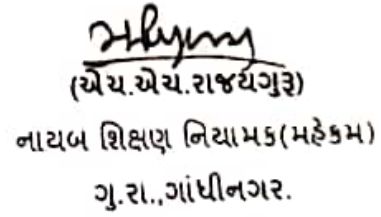 (એચ.એચ.રાજ્યગુરૂ)
નાયબ શિક્ષણ નિયામક(મહેકમ)
ગુ.રા.,ગાંધીનગર.